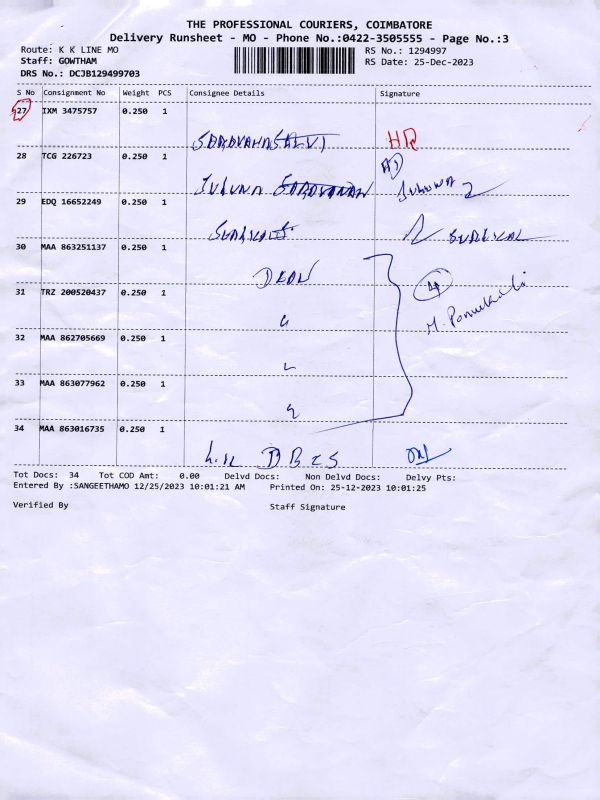 THE PROFESSIONAL COURIERS, COIMBATORE
Delivery Runsheet - MO - Phone No.:0422-3505555 - Page No.:3
Route: K K LINE MO RS No.: 1294997
Staff: GOWTHAM RS Date: 25-Dec-2023
DRS No.: DCJB129499703
S No Consignment No Weight PCS Consignee Details Signature
27 IXM 3475757 0.250 1
HR
28 TCG 226723 0.250 1
29 EDQ 16652249 0.250 1
SURGICAL
30 MAA 863251137 0.250 1
DEAN
31 TRZ 200520437 0.250 1
4
32 MAA 862705669 0.250 1
33 MAA 863077962 0.250 1
34 MAA 863016735 0.250 1
Tot Docs: 34 Tot COD Amt: 0.00 Delvd Docs: Non Delvd Docs: Delvy Pts:
Entered By :SANGEETHAMO 12/25/2023 10:01:21 AM Printed On: 25-12-2023 10:01:25
Verified By Staff Signature